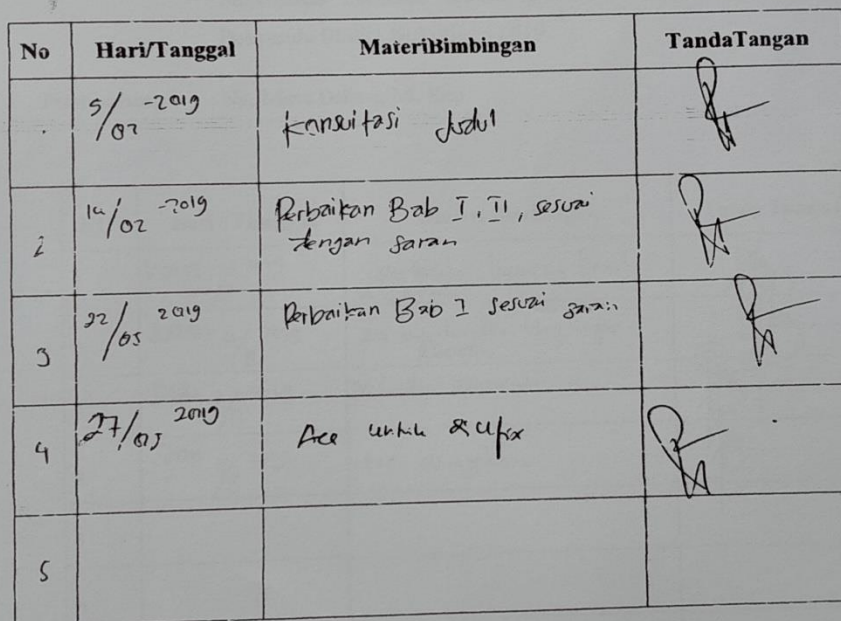 No Hari/Tanggal MateriBimbingan TandaTangan
. 5/02 -2019 Konsultasi Judul
2 14/02 -2019 Perbaikan Bab I, II, sesuai
dengan saran
3 22/05 2019 Perbaikan Bab I sesuai saran
4 27/05 2019 Acc untuk
5